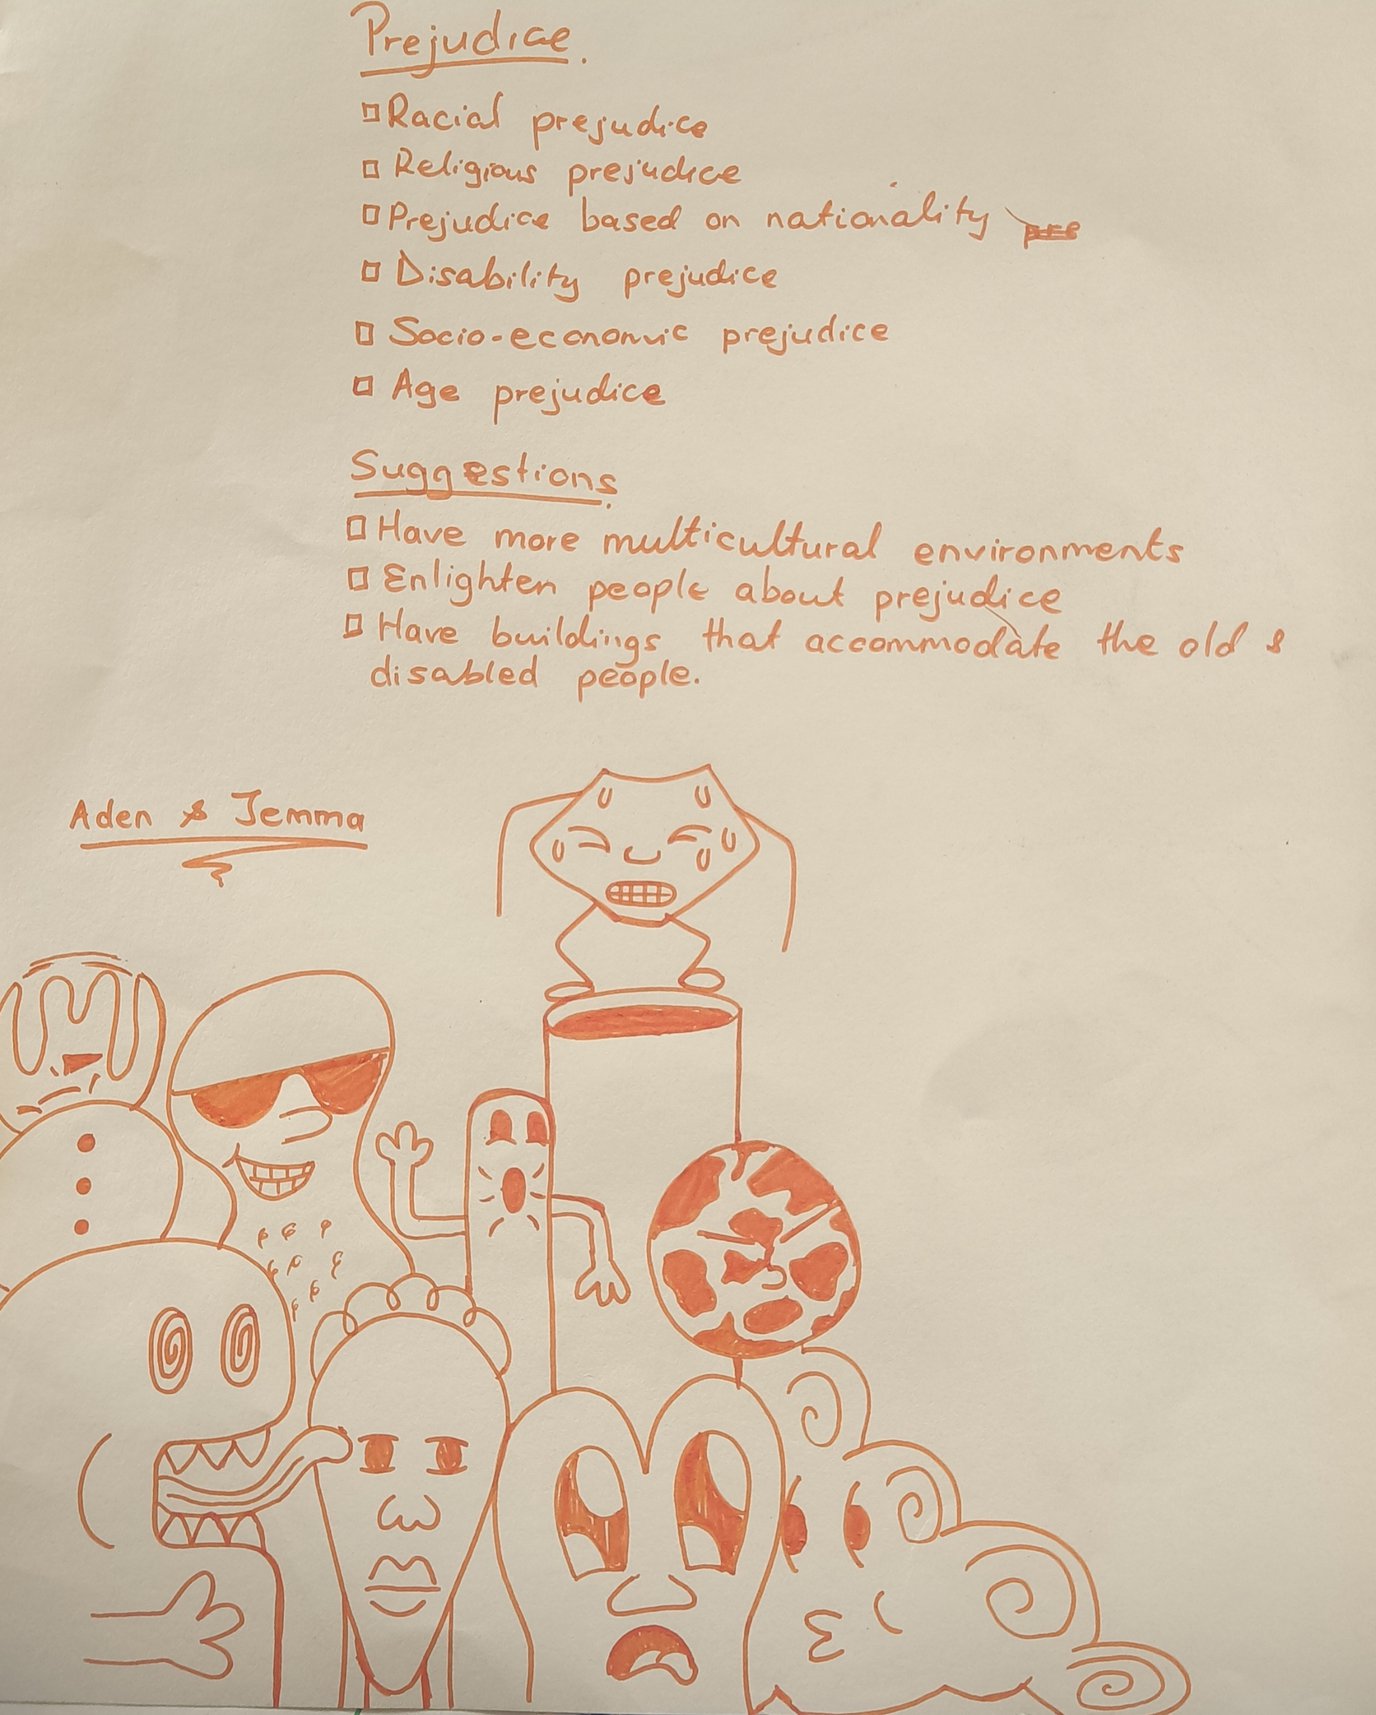 Prejudice.
Racial prejudice
Religious prejudice
Prejudice based on nationality
Disability prejudice
Socio-economic prejudice
Age prejudice
Suggestions.
Have more multicultural environments
Enlighten people about prejudice
Have buildings that accommodate the old &
disabled people.
Aden & Jemma